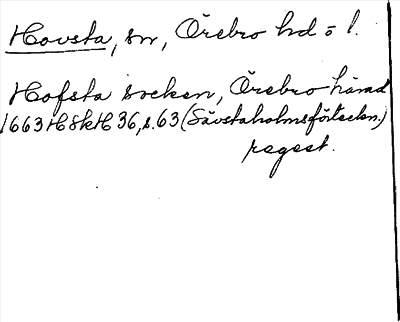 Hovsta, sn, Örebro hd ö l.
Hofsta socken, Örebro härad
1663 HSkH 36, s. 63 (Sävstaholmsförteckn.)
regest.